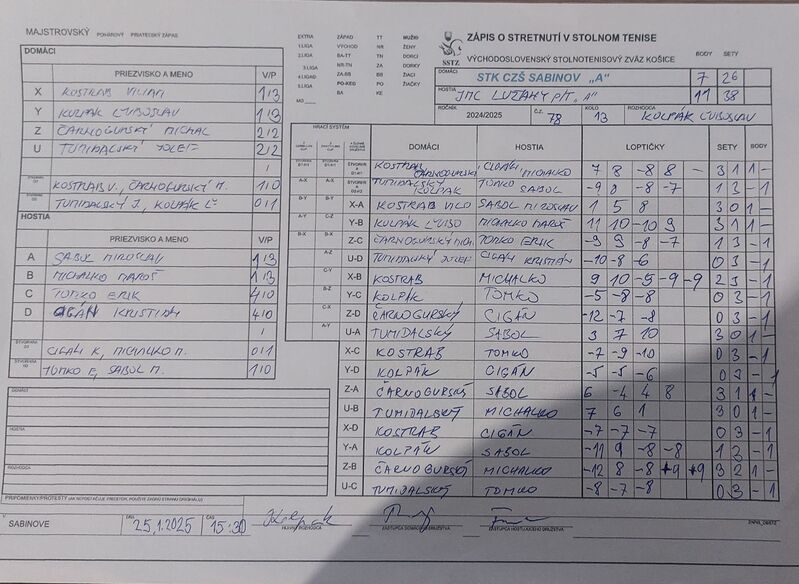 MAJSTROVSKÝ POHÁROVÝ PRIATEĽSKÝ ZÁPAS
DOMÁCI
PRIEZVISKO A MENO V/P
X KOSTRAB VILIAM 1/3
Y KOLPÁK ĽUBOSLAV 1/3
Z ČARNOGURSKÝ MICHAL 2/2
U TUMIDALSKÝ JOZEF 2/2
/
KOSTRAB V., ČARNOGURSKÝ M. 1/0
TUMIDALSKÝ J., KOLPÁK Ľ 0/1
HOSTIA
PRIEZVISKO A MENO V/P
A SABOL MIROSLAV 1/3
B MICHALKO MAROŠ 1/3
C TOMKO ERIK 4/0
D CIGÁN KRISTIÁN 4/0
/
CIGÁN K, MICHALKO M. 0/1
TOMKO E, SABOL M. 1/0
DOMÁCI
HOSTIA
ROZHODCA
PRIPOMIENKY/PROTESTY
V SABINOVE DŇA 25.1.2025 ČAS 15:30
HLAVNÝ ROZHODCA ZÁSTUPCA DOMÁCEHO DRUŽSTVA ZÁSTUPCA HOSŤUJÚCEHO DRUŽSTVA
EXTRA ZÁPAD TT MUŽI
1.LIGA VÝCHOD NR ŽENY
2.LIGA BA-TT TN DORCI
3.LIGA NR-TN ZA DORKY
4.LIGA ZA-BB BB ŽIACI
5.LIGA PO-KE PO ŽIAČKY
BA KE
MO
SSTZ
ZÁPIS O STRETNUTÍ V STOLNOM TENISE
VÝCHODOSLOVENSKÝ STOLNOTENISOVÝ ZVÄZ KOŠICE
BODY SETY
DOMÁCI STK CZŠ SABINOV „A" 7 26
HOSTIA JMC LUŽANY P/T „A" 11 38
ROČNÍK 2024/2025 Č.Z. 78 KOLO 13 ROZHODCA KOLPÁK ĽUBOSLAV
HRACÍ SYSTÉM
DOMÁCI HOSTIA LOPTIČKY SETY BODY
KOSTRAB ČARNOGURSKÝ CIGÁN MICHALKO 7 8 -8 8 - 3 1 1 -
TUMIDALSKÝ KOLPÁK TOMKO SABOL -9 8 -8 -7 1 3 - 1
X-A KOSTRAB VILO SABOL MIROSLAV 1 5 8 3 0 1 -
Y-B KOLPÁK ĽUBO MICHALKO MAROŠ 11 10 -10 9 3 1 1 -
Z-C ČARNOGURSKÝ MICH. TOMKO ERIK -9 9 -8 -7 1 3 - 1
U-D TUMIDALSKÝ JOZEF CIGÁN KRISTIÁN -10 -8 -6 0 3 - 1
X-B KOSTRAB MICHALKO 9 10 -5 -9 -9 2 3 - 1
Y-C KOLPÁK TOMKO -5 -8 -8 0 3 - 1
Z-D ČARNOGURSKÝ CIGÁN -12 -7 -8 0 3 - 1
U-A TUMIDALSKÝ SABOL 3 7 10 3 0 1 -
X-C KOSTRAB TOMKO -7 -9 -10 0 3 - 1
Y-D KOLPÁK CIGÁN -5 -5 -6 0 3 - 1
Z-A ČARNOGURSKÝ SABOL 6 -4 4 8 3 1 1 -
U-B TUMIDALSKÝ MICHALKO 7 6 1 3 0 1 -
X-D KOSTRAB CIGÁN -7 -7 -7 0 3 - 1
Y-A KOLPÁK SABOL -11 9 -8 -8 1 3 - 1
Z-B ČARNOGURSKÝ MICHALKO -12 8 -8 9 9 3 2 1 -
U-C TUMIDALSKÝ TOMKO -8 -7 -8 0 3 - 1